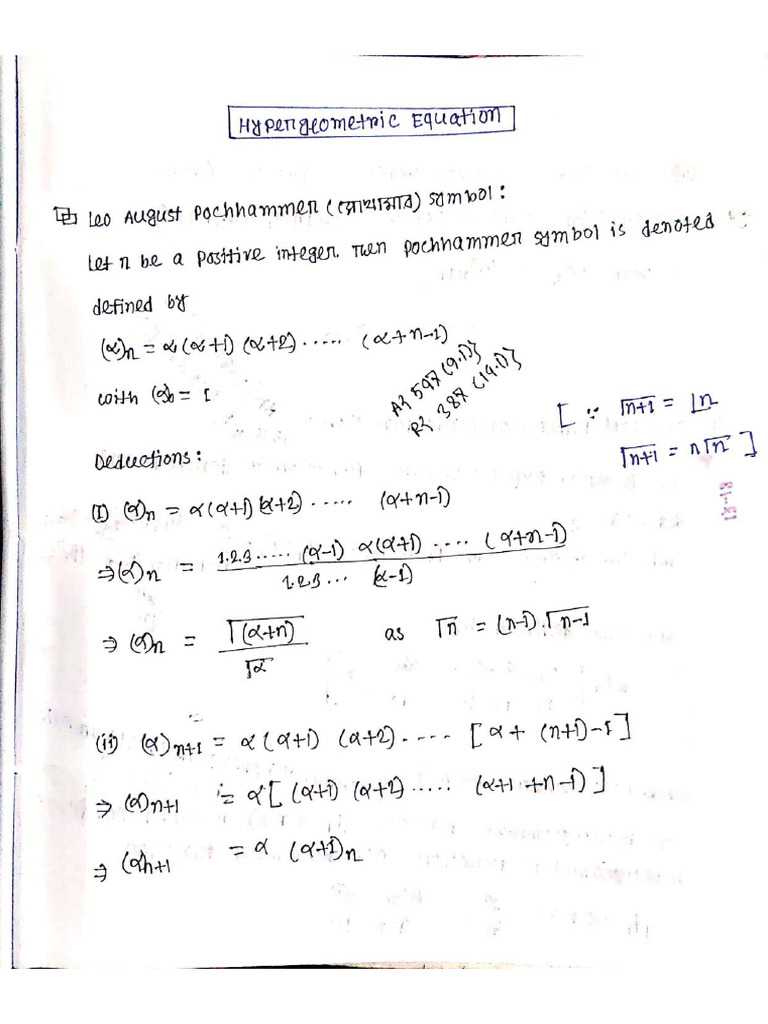 Hypergeometric Equation
Leo August Pochhammer (পোখামার) symbol:
Let n be a positive integer. Then pochhammer symbol is denoted
defined by
(α)n = α(α+1)(α+2)..... (α+n-1)
with (α)0 = 1
A⟩ 597 (9.1)}
R⟩ 387 (14.1)}
[ ∵ Γn+1 = ⌊n
Γn+1 = nΓn ]
Deductions:
(I) (α)n = α(α+1)(α+2)...... (α+n-1)
⇒(α)n = 1.2.3.....(α-1) α(α+1).....(α+n-1) / 1.2.3... (α-1)
⇒ (α)n = Γ(α+n) / Γα as Γn = (n-1).Γn-1
(ii) (α)n+1 = α(α+1) (α+2)..... [α+ (n+1)-1]
⇒ (α)n+1 = α[(α+1) (α+2)..... (α+1+n-1)]
⇒ (α)n+1 = α (α+1)n